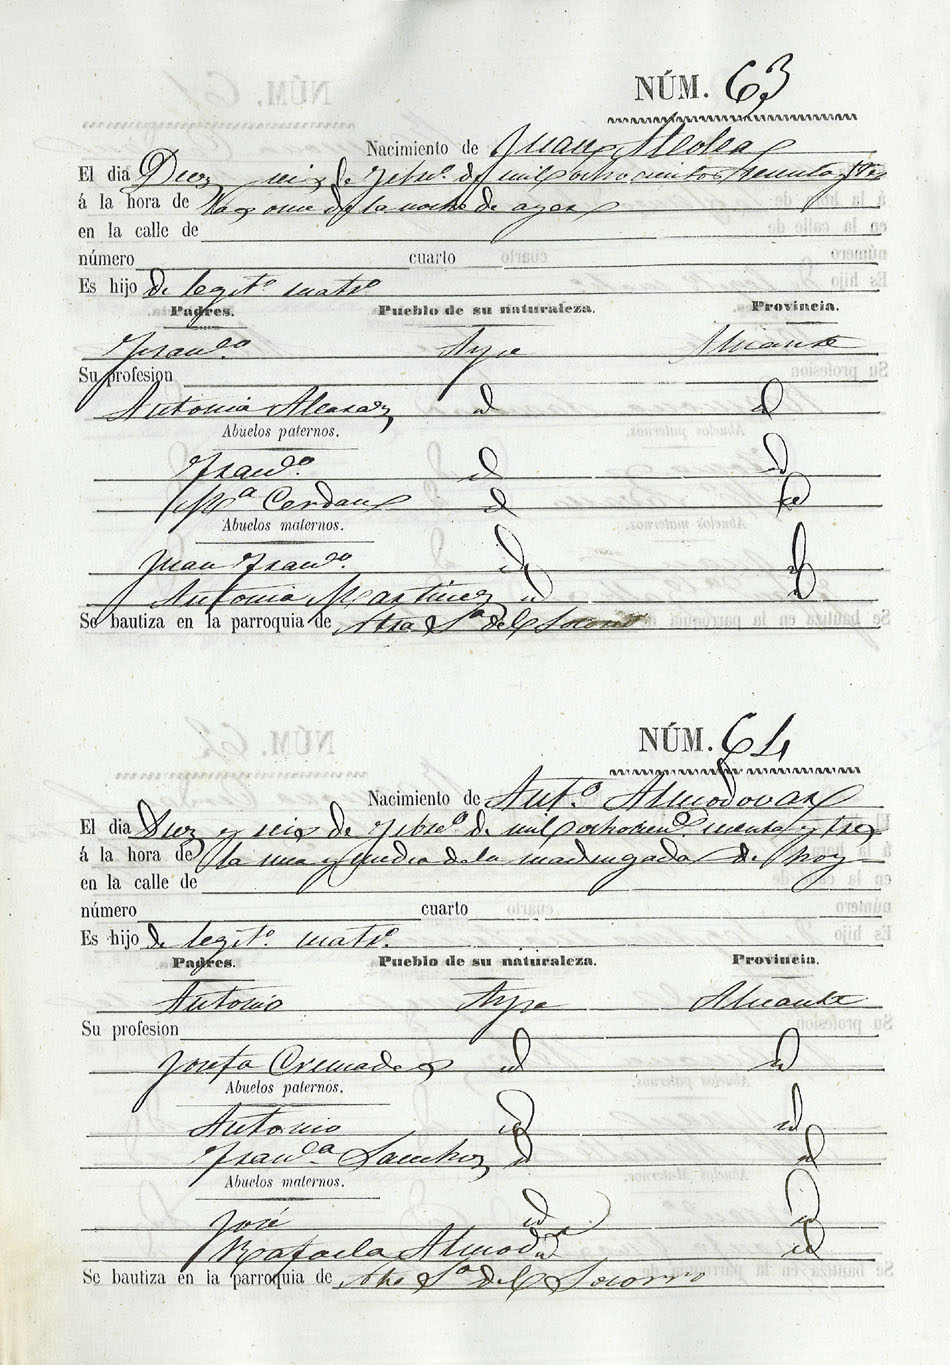 NÚM. 63
Nacimiento de Juan Alcolea
El dia Diez y seis de Febro. de mil ochocientos setenta y tres
á la hora de las once de la noche de ayer
en la calle de
número cuarto
Es hijo de legit.º mat.º
Padres. Pueblo de su naturaleza. Provincia.
Fran.co Aspe Alicante
Su profesion
Antonia Alcaraz id id
Abuelos paternos.
Fran.co id id
M.ª Cerdan id id
Abuelos maternos.
Juan Fran.co id id
Antonia Martinez id id
Se bautiza en la parroquia de Ntra S.ª del Socorro
NÚM. 64
Nacimiento de Ant.º Almodovar
El dia Diez y seis de Febro. de mil ochocien.s setenta y tres
á la hora de la una y media de la madrugada de hoy
en la calle de
número cuarto
Es hijo de legit.º mat.º
Padres. Pueblo de su naturaleza. Provincia.
Antonio Aspe Alicante
Su profesion
Josefa Cremades id id
Abuelos paternos.
Antonio id id
Fran.ca Sanchez id id
Abuelos maternos.
José id id
Rafaela Almod.r id id
Se bautiza en la parroquia de Ntra S.ª del Socorro